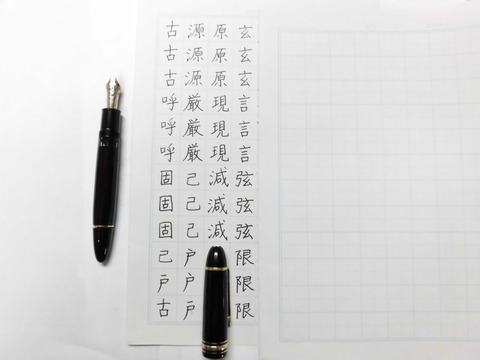 玄玄玄言言言弦弦弦限限限
原原原現現現減減減
源源源厳厳厳己己己戸戸戸
古古古呼呼呼固固固己戸古